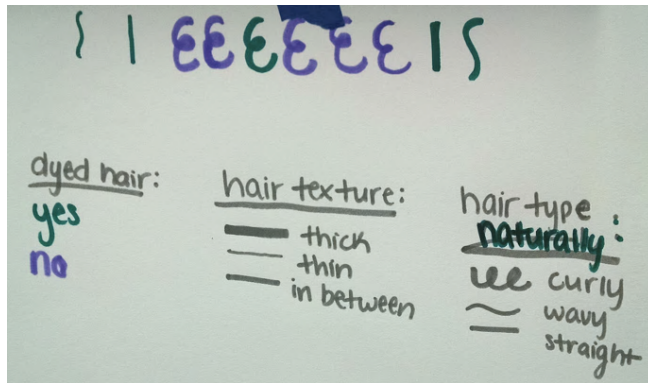 dyed hair:
yes
no
hair texture:
thick
thin
in between
hair type
naturally:
curly
wavy
straight